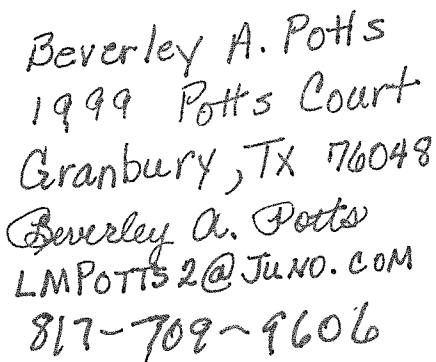 Beverley A. Potts
1999 Potts Court
Granbury, TX 76048
Beverley A. Potts
LMPOTTS2@JUNO.COM
817-709-9606